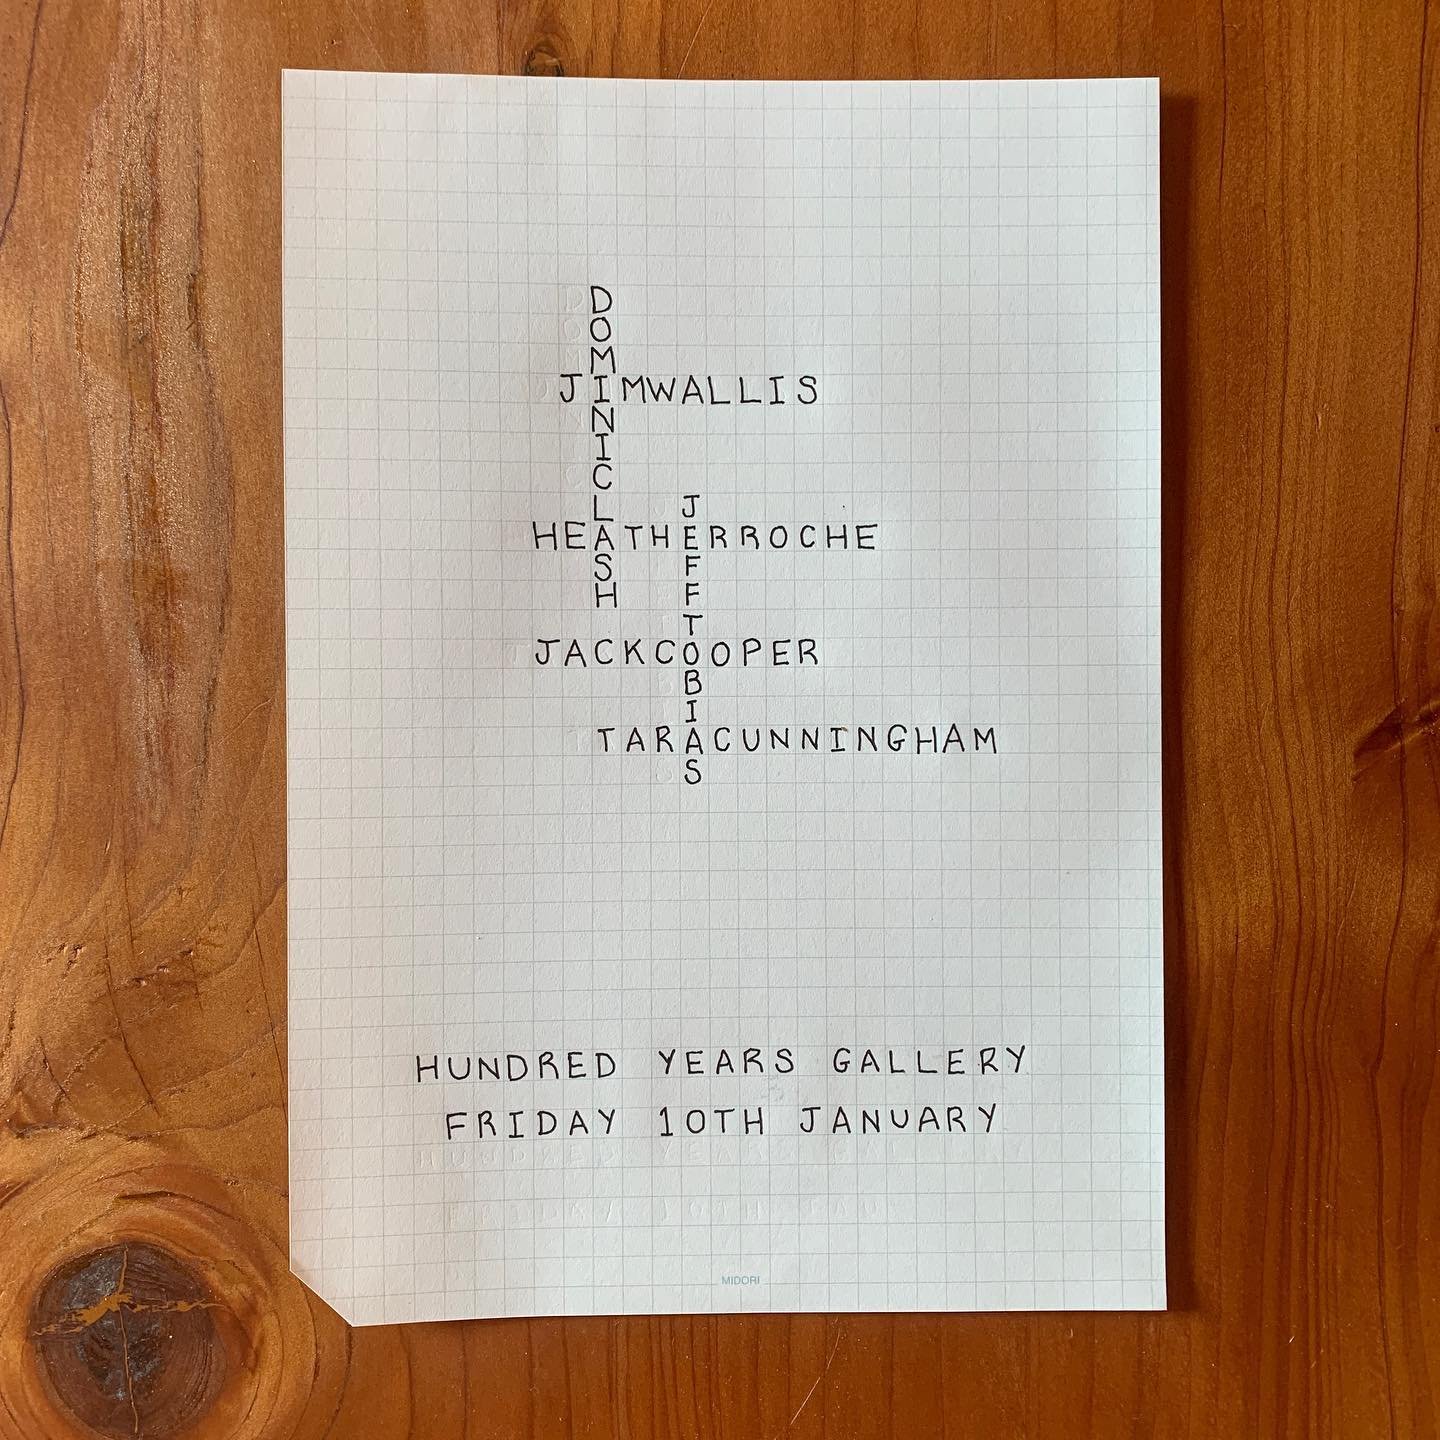 DOMINICLASH
JIMWALLIS
JEFFTOBIAS
HEATHERROCHE
JACKCOOPER
TARACUNNINGHAM
HUNDRED YEARS GALLERY
FRIDAY 10TH JANUARY
MIDORI